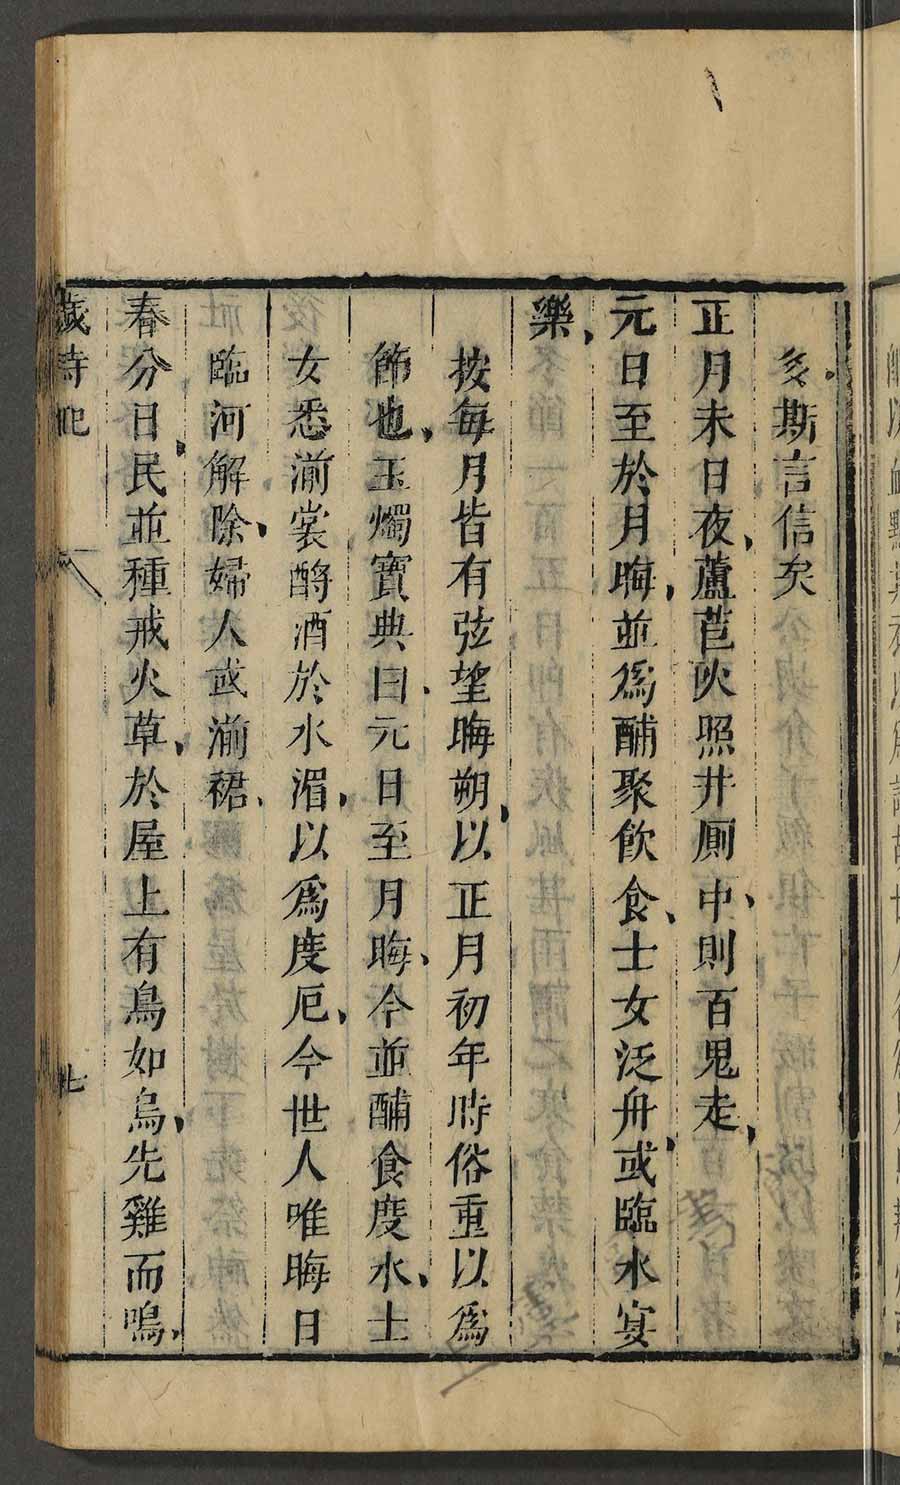 多斯言信矣
正月未日夜蘆苣火照井厠中則百鬼走
元日至於月晦並爲酺聚飲食士女泛舟或臨水宴
樂
按每月皆有弦望晦朔以正月初年時俗重以爲
節也玉燭寶典曰元日至月晦今並酺食度水士
女悉湔裳酹酒於水湄以爲度厄今世人唯晦日
臨河解除婦人或湔裙
春分日民並種戒火草於屋上有鳥如烏先雞而鳴
歲時記
七